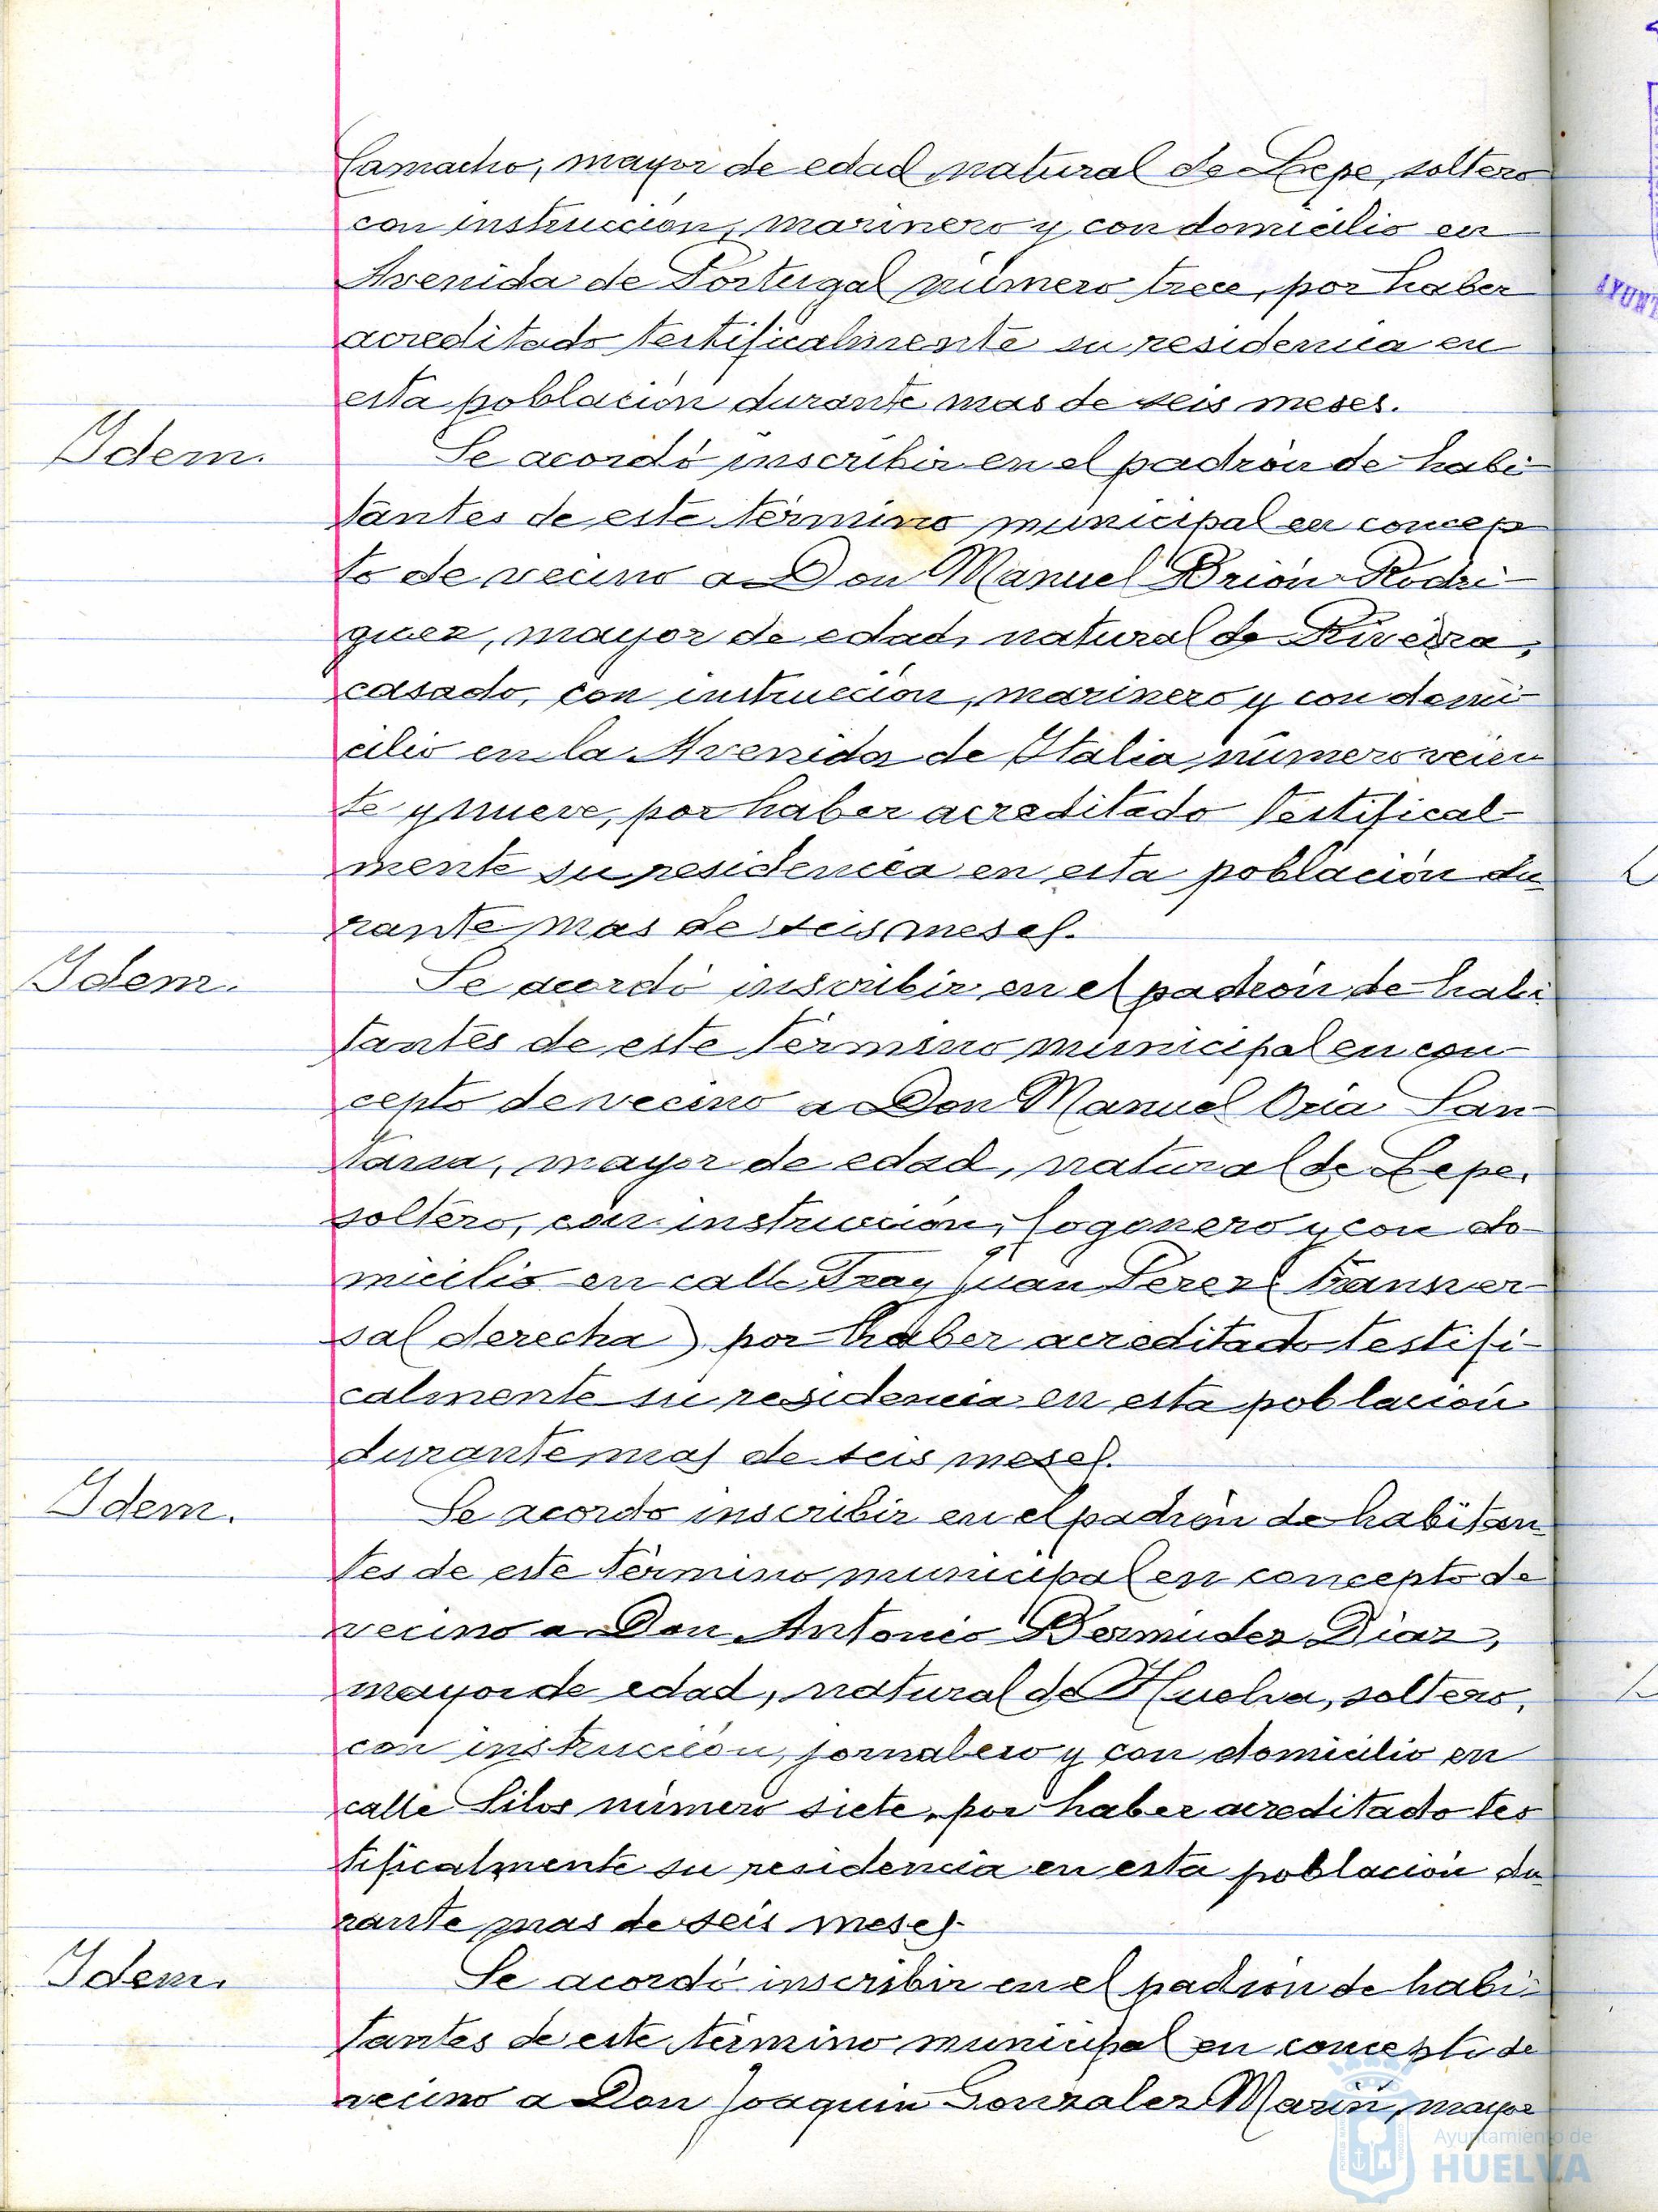 Camacho, mayor de edad natural de Lepe, soltero
con instruccion, marinero y con domicilio en
Avenida de Portugal número trece, por haber
acreditado testificalmente su residencia en
esta población durante mas de seis meses.
Idem.
Se acordó inscribir en el padrón de habi-
tantes de este término municipal en concep
to de vecino a Don Manuel Brión Rodri-
guez, mayor de edad, natural de Riveira,
casado, con instrucción, marinero y con domi-
cilio en la Avenida de Italia número vein
te y nueve, por haber acreditado testifical-
mente su residencia en esta población du
rante mas de seis meses.
Idem.
Se acordó inscribir en el padrón de habi
tantes de este término municipal en con-
cepto de vecino a Don Manuel Oria San-
tana, mayor de edad, natural de Lepe,
soltero, con instrucción, fogonero y con do-
micilio en calle Fray Juan Perez (transver-
sal derecha) por haber acreditado testifi-
calmente su residencia en esta población
durante mas de seis meses.
Idem.
Se acordo inscribir en el padrón de habitan
tes de este término municipal en concepto de
vecino a Don Antonio Bermudez Diaz,
mayor de edad, natural de Huelva, soltero,
con instrucción, jornalero y con domicilio en
calle Silos número siete, por haber acreditado tes
tificalmente su residencia en esta población du
rante mas de seis meses.
Idem.
Se acordó inscribir en el padrón de habi-
tantes de este término municipal en concepto de
vecino a Don Joaquin Gonzalez Marin, mayor
Ayuntamiento de
HUELVA
AYUNT